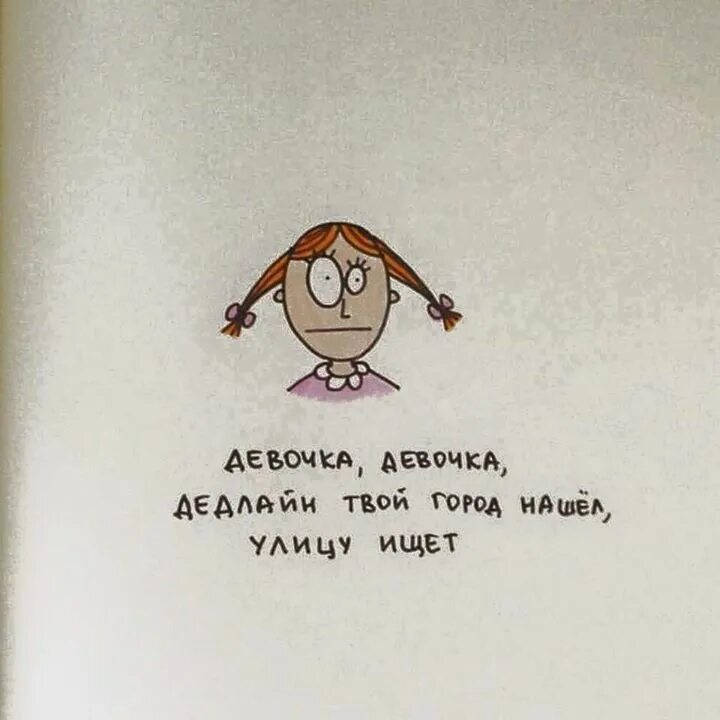 ДЕВОЧКА, ДЕВОЧКА,
ДЕДЛАЙН ТВОЙ ГОРОД НАШЁЛ,
УЛИЦУ ИЩЕТ